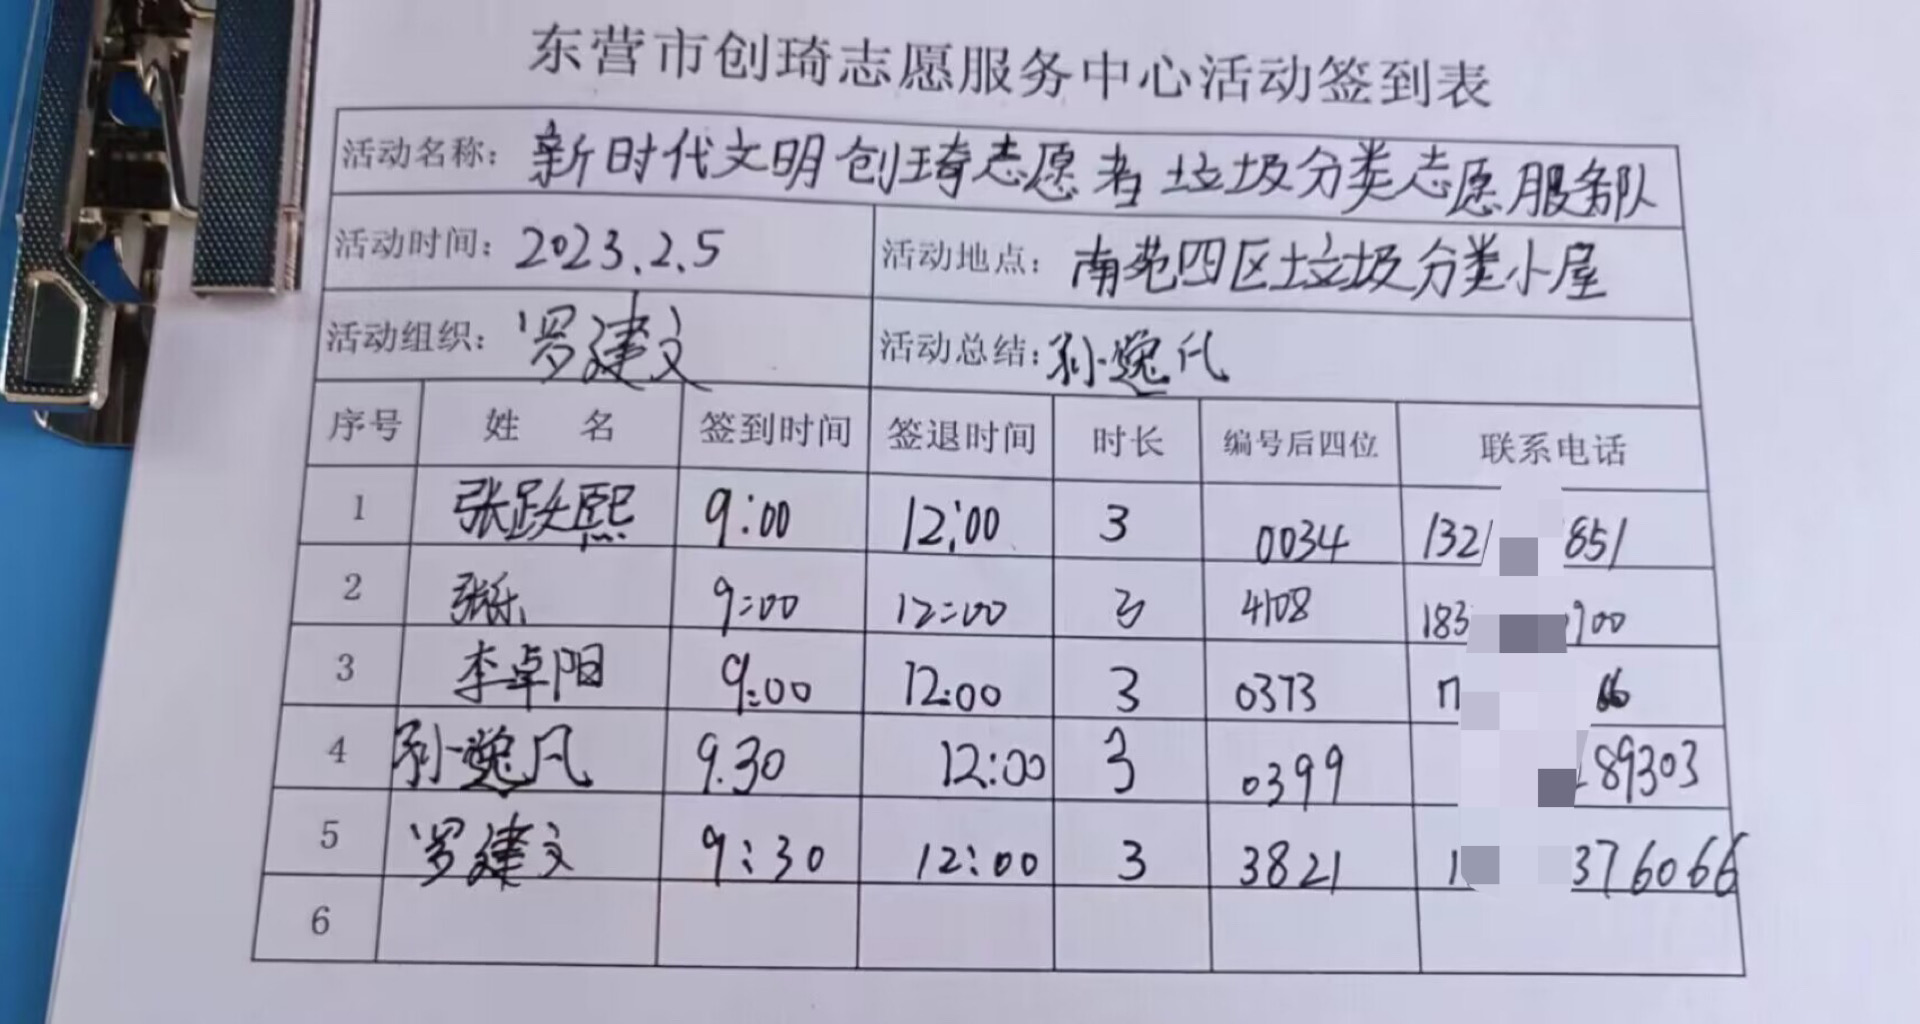 东营市创琦志愿服务中心活动签到表
活动名称: 新时代文明创琦志愿者垃圾分类志愿服务队
活动时间: 2023.2.5 活动地点: 南苑四区垃圾分类小屋
活动组织: 罗建文 活动总结: 孙逸凡
序号 姓 名 签到时间 签退时间 时长 编号后四位 联系电话
1 张跃熙 9:00 12:00 3 0034 1321 851
2 张乐 9:00 12:00 3 4108 183 900
3 李卓阳 9:00 12:00 3 0373 17 66
4 孙逸凡 9.30 12:00 3 0399 89303
5 罗建文 9:30 12:00 3 3821 1 376066
6